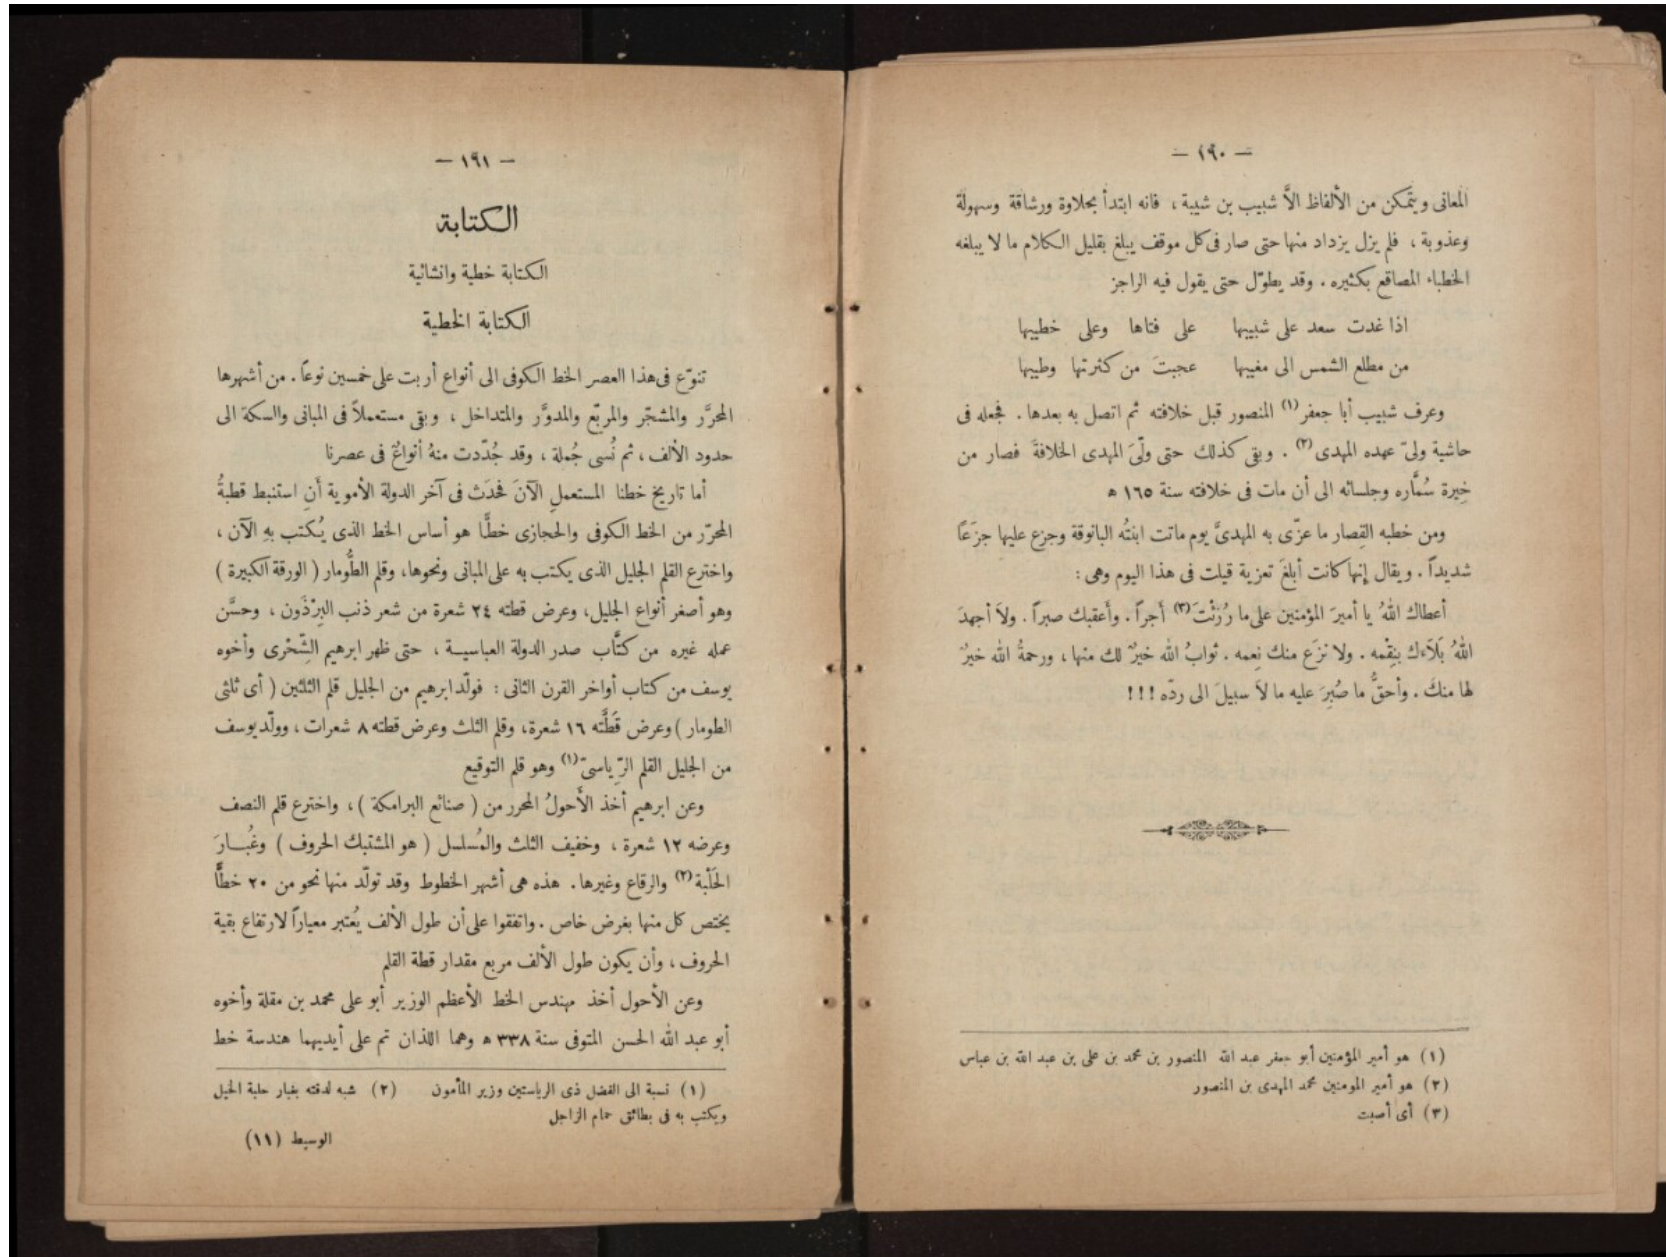 — ١٩٠ —
المعانى ويتمكن من الألفاظ الاَّ شبيب بن شيبة ، فانه ابتدأ بحلاوة ورشاقة وسهولة
وعذوبة ، فلم يزل يزداد منها حتى صار فى كل موقف يبلغ بقليل الكلام ما لا يبلغه
الخطباء المصاقع بكثيره . وقد يطوّل حتى يقول فيه الراجز
اذا غدت سعد على شبيبها على فتاها وعلى خطيبها
من مطلع الشمس الى مغيبها عجبتَ من كثرتها وطيبها
وعرف شبيب أبا جعفر (١) المنصور قبل خلافته ثم اتصل به بعدها . فجعله فى
حاشية ولىّ عهده المهدى (٢) . وبقى كذلك حتى ولّىَ المهدى الخلافةَ فصار من
خِيرة سُمَّاره وجلسائه الى أن مات فى خلافته سنة ١٦٥ ه
ومن خطبه القِصار ما عزّى به المهدىَّ يوم ماتت ابنتُه البانوقة وجزع عليها جزَعًا
شديداً . ويقال إنها كانت أبلغَ تعزية قيلت فى هذا اليوم وهى :
أعطاك اللهُ يا أميرَ المؤمنين على ما رُزئْتَ (٣) أجراً . وأعقبك صبراً . ولاَ أجهدَ
اللهُ بَلاَءك بنِقْمه . ولا نزَع منك نِعمه . ثوابُ الله خيرٌ لك منها ، ورحمةُ الله خيرٌ
لها منكَ . وأحقُّ ما صُبِرَ عليه ما لاَ سبيلَ الى ردّه !!!
(١) هو أمير المؤمنين أبو جعفر عبد الله المنصور بن محمد بن على بن عبد الله بن عباس
(٢) هو أمير المومنين محمد المهدى بن المنصور
(٣) أى أصبت
— ١٩١ —
الكتابة
الكتابة خطية وانشائية
الكتابة الخطية
تنوّع فى هذا العصر الخط الكوفى الى أنواع أربت على خمسين نوعاً . من أشهرها
المحرَّر والمشجّر والمربّع والمدوَّر والمتداخل ، وبقى مستعملاً فى المبانى والسكة الى
حدود الألف ، ثم نُسى جُملة ، وقد جُدّدت منهُ أنواعٌ فى عصرنا
أما تاريخ خطنا المستعملِ الآنَ فحَدَث فى آخر الدولة الأموية أَنِ استنبط قطبةُ
المحرّر من الخط الكوفى والحجازى خطًّا هو أساس الخط الذى يُكتب بهِ الآن ،
واخترع القلم الجليل الذى يكتب به على المبانى ونحوها ، وقلم الطُّومار ( الورقة الكبيرة )
وهو أصغر أنواع الجليل ، وعرض قطته ٢٤ شعرة من شعر ذنب البِرْذَون ، وحسَّن
عمله غيره من كتَّاب صدر الدولة العباسيـة ، حتى ظهر ابرهيم الشِّجْرى وأخوه
يوسف من كتاب أواخر القرن الثانى : فولّد ابرهيم من الجليل قلم الثلثين ( أى ثلثى
الطومار ) وعرض قَطَّته ١٦ شعرة ، وقلم الثلث وعرض قطته ٨ شعرات ، وولّد يوسف
من الجليل القلم الرّياسىّ (١) وهو قلم التوقيع
وعن ابرهيم أخذ الأَحولُ المحرر من ( صنائع البرامكة ) ، واخترع قلم النصف
وعرضه ١٢ شعرة ، وخفيف الثلث والمُسلسل ( هو المشتبك الحروف ) وغُبـارَ
الحَلْبة (٢) والرقاع وغيرها . هذه هى أشهر الخطوط وقد تولّد منها نحو من ٢٠ خطًّا
يختص كل منها بغرض خاص . واتفقوا على أن طول الألف يُعتبر معياراً لارتفاع بقية
الحروف ، وأن يكون طول الألف مربع مقدار قطة القلم
وعن الأحول أخذ مهندس الخط الأعظم الوزير أبو على محمد بن مقلة وأخوه
أبو عبد الله الحسن المتوفى سنة ٣٣٨ ه وهما اللذان تم على أيديهما هندسة خط
(١) نسبة الى الفضل ذى الرياستين وزير المأمون (٢) شبه لدقته بغبار حلبة الخيل
ويكتب به فى بطائق حمام الزاجل
الوسيط (١١)